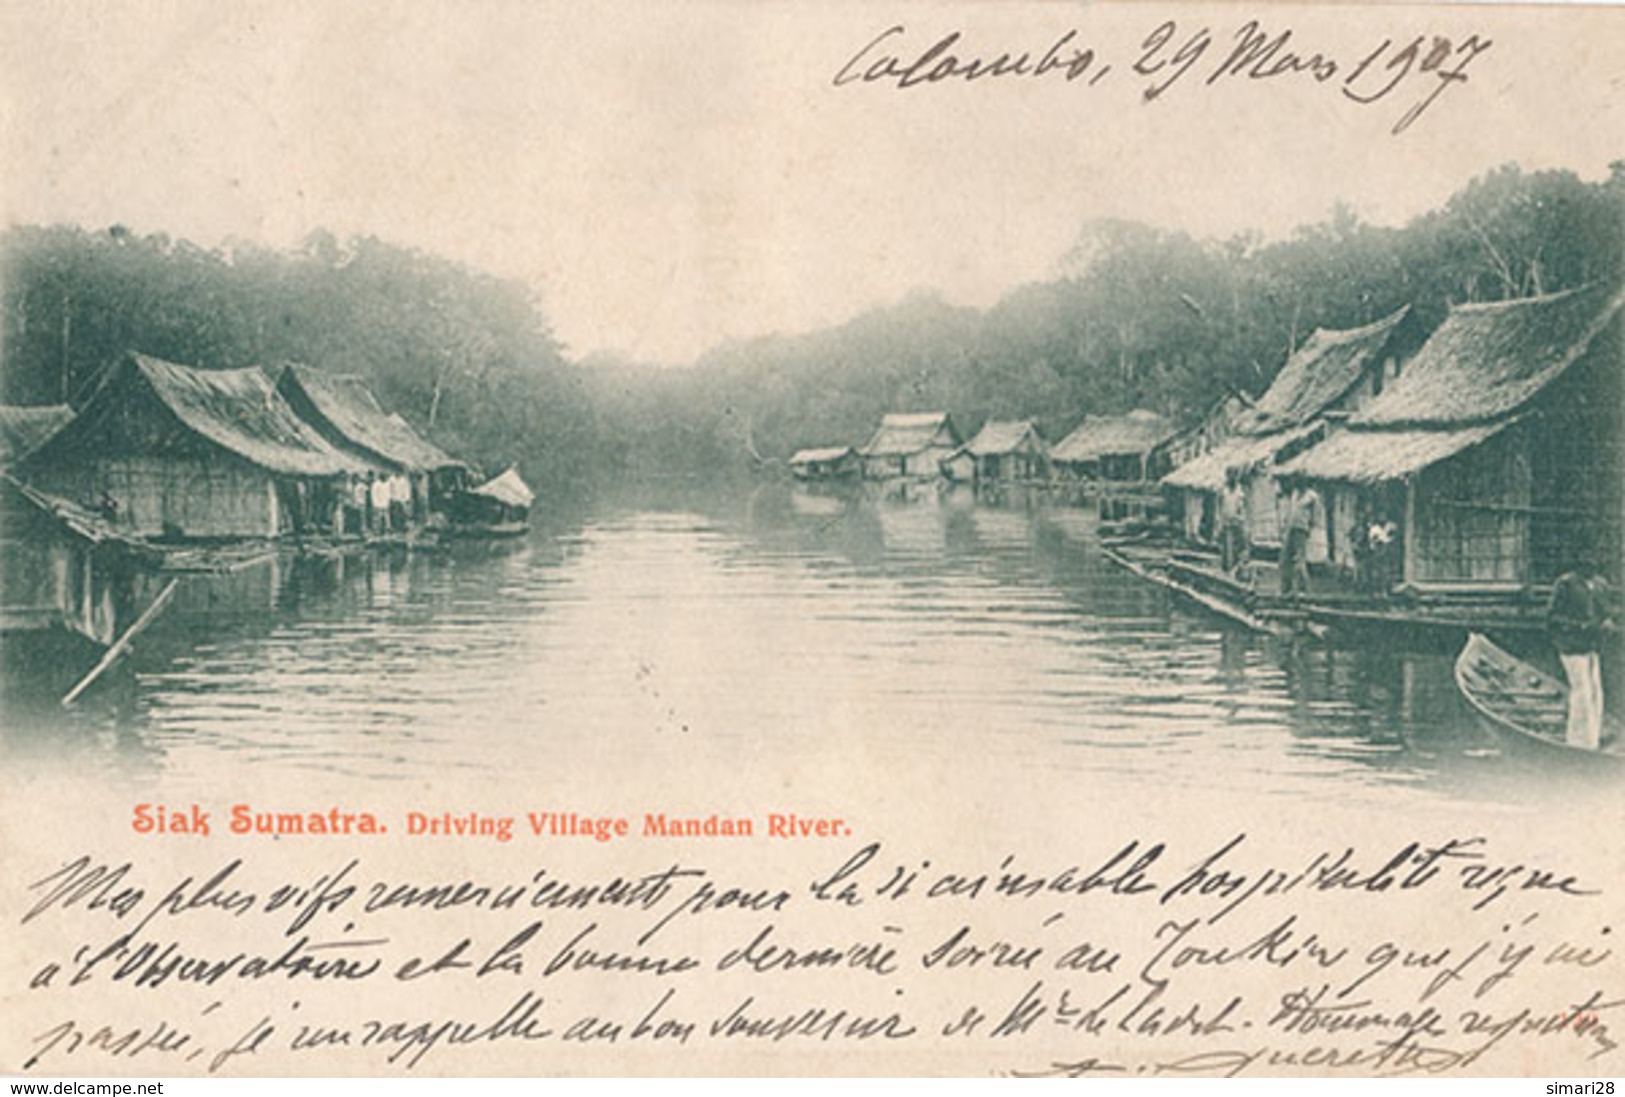 Colombo, 29 Mars 1907
Siak Sumatra. Driving Village Mandan River.
Mes plus vifs remerciements pour la si aimable hospitalité reçue
à l'Observatoire et la bonne dernière soirée au Tonkin que j'y ai
passée, je me rappelle au bon souvenir de Mr le Cadet. Hommage respectueux
www.delcampe.net
simari28